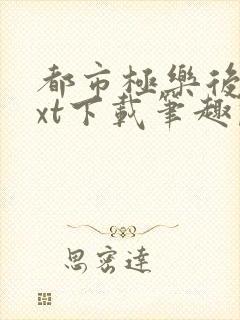 都市極樂後
xt下載筆趣
思密達